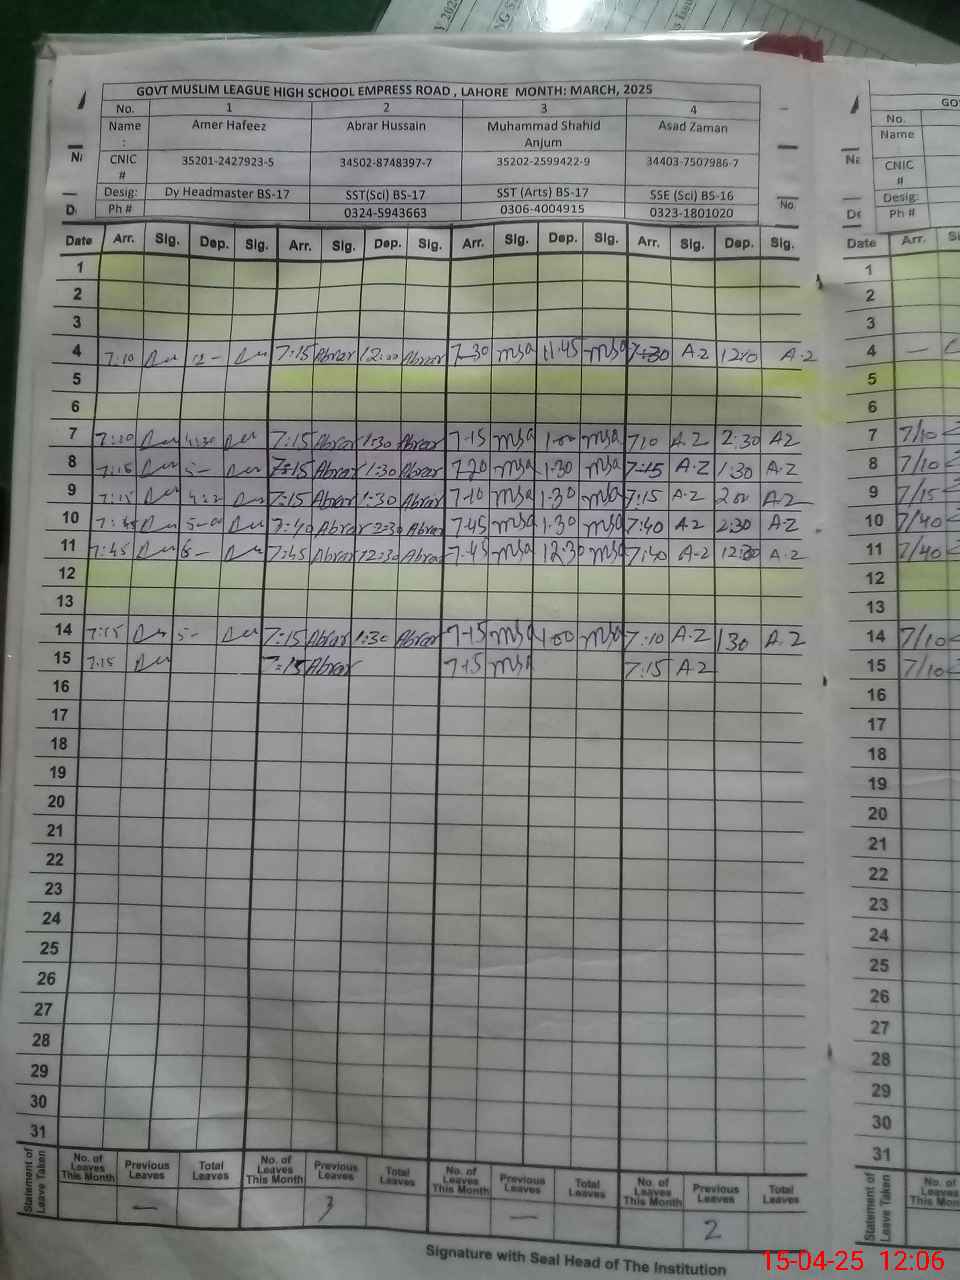 GOVT MUSLIM LEAGUE HIGH SCHOOL EMPRESS ROAD , LAHORE MONTH: MARCH, 2025
No. 1 2 3 4
Name : Amer Hafeez Abrar Hussain Muhammad Shahid Anjum Asad Zaman
CNIC # 35201-2427923-5 34502-8748397-7 35202-2599422-9 34403-7507986-7
Desig: Dy Headmaster BS-17 SST(Sci) BS-17 SST (Arts) BS-17 SSE (Sci) BS-16
Ph # 0324-5943663 0306-4004915 0323-1801020
Date Arr. Sig. Dep. Sig. Arr. Sig. Dep. Sig. Arr. Sig. Dep. Sig. Arr. Sig. Dep. Sig.
1
2
3
4 7:10 12- 7:15 Abrar 12:00 Abrar 7-30 msa 11:45 msa 7:30 A.Z A.Z
5
6
7 7:15 Abrar 1:30 Abrar 7-15 msa 1-00 msa 710 A.Z 2:30 AZ
8 7:15 5- 7:15 Abrar 1:30 Abrar 7-20 msa 1-30 msa 7:15 A.Z 1:30 A.Z
9 7:15 7:15 Abrar 1:30 Abrar 7-10 msa 1-30 msa 7:15 A.Z 200 A.Z
10 7:45 5-00 7:40 Abrar 2:30 Abrar 7-45 msa 1-30 msa 7:40 A.Z 2:30 A.Z
11 7:45 6- 7:45 Abrar 12:30 Abrar 7-45 msa 12:30 msa 7:40 A-Z 12:30 A.Z
12
13
14 7:15 5- 7:15 Abrar 1:30 Abrar 7-15 msa 1-00 msa 7:10 A.Z 130 A.Z
15 7:15 7:15 Abrar 7-15 msa 7:15 A.Z
16
17
18
19
20
21
22
23
24
25
26
27
28
29
30
31
Statement of Leave Taken
No. of Leaves This Month Previous Leaves Total Leaves No. of Leaves This Month Previous Leaves Total Leaves No. of Leaves This Month Previous Leaves Total Leaves No. of Leaves This Month Previous Leaves Total Leaves
— 3 — 2
Signature with Seal Head of The Institution
No.
Name :
CNIC #
Desig:
Ph #
Date Arr.
1
2
3
4 —
5
6
7 7/10
8 7/10
9 7/15
10 7/40
11 7/40
12
13
14 7/10
15 7/10
16
17
18
19
20
21
22
23
24
25
26
27
28
29
30
31
Statement of Leave Taken
15-04-25 12:06